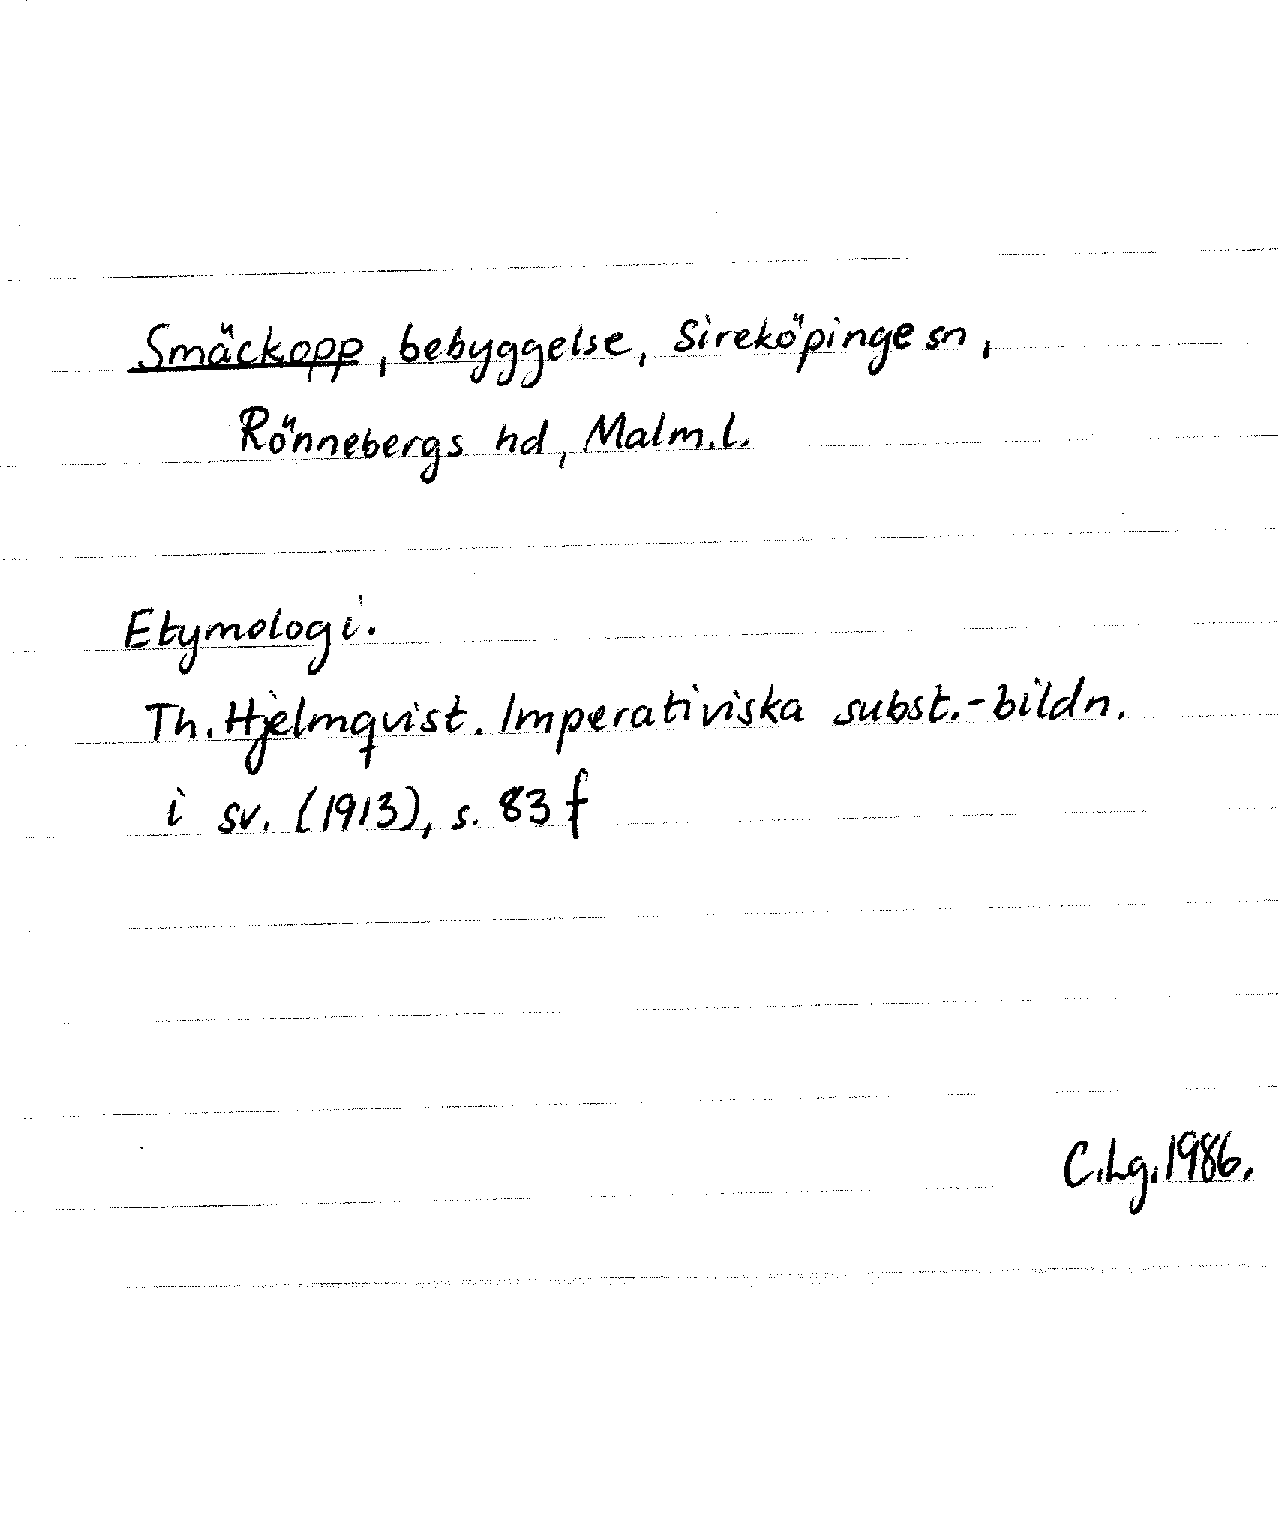 Smäckopp, bebyggelse, Sireköpinge sn,
Rönnebergs hd, Malm.l.
Etymologi.
Th. Hjelmqvist. Imperativiska subst.-bildn.
i sv. (1913), s. 83 f
C.Lg. 1986.